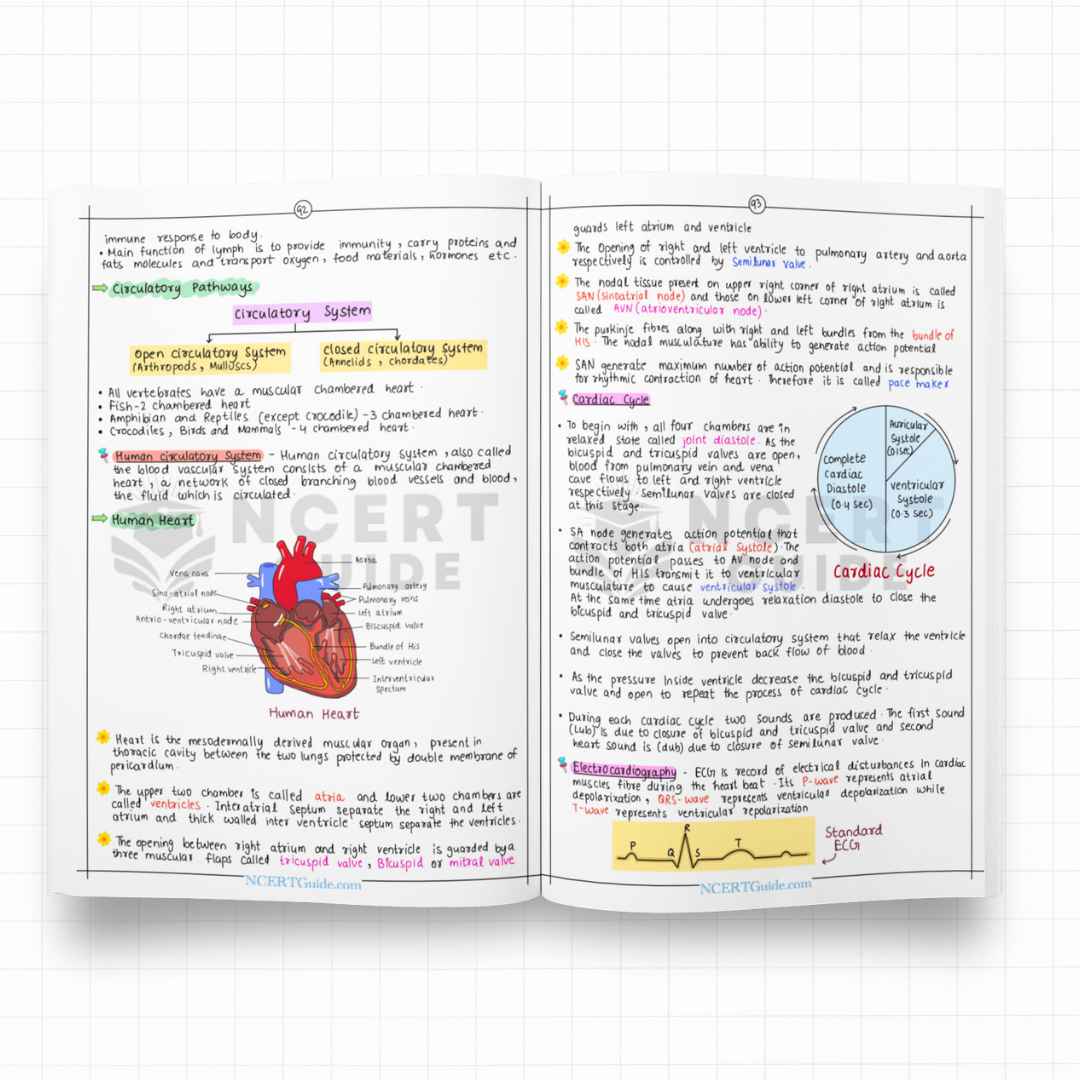 92
immune response to body.
• Main function of lymph is to provide immunity, carry proteins and
fats molecules and transport oxygen, food materials, hormones etc.
Circulatory Pathways
Circulatory System
Open Circulatory System
(Arthropods, Mulluscs)
closed circulatory system
(Annelids, chordates)
• All vertebrates have a muscular chambered heart.
• Fish-2 chambered heart
• Amphibian and Reptiles (except crocodile) -3 chambered heart.
• Crocodiles, Birds and Mammals -4 chambered heart.
Human circulatory System - Human circulatory system, also called
the blood vascular system consists of a muscular chambered
heart, a network of closed branching blood vessels and blood,
the fluid which is circulated.
Human Heart
NCERT
GUIDE
Vena cava
Sino-atrial node
Right atrium
Antrio-ventricular node
Chordae tendinae
Tricuspid valve
Right ventricle
Aorta
Pulmonary artery
Pulmonary veins
Left atrium
Biscuspid valve
Bundle of His
Left ventricle
Interventricular
Spectum
Human Heart
Heart is the mesodermally derived muscular organ, present in
thoracic cavity between the two lungs protected by double membrane of
pericardium.
The upper two chamber is called atria and lower two chambers are
called ventricles. Interatrial Septum separate the right and left
atrium and thick walled inter ventricle septum separate the ventricles.
The opening between right atrium and right ventricle is guarded by a
three muscular flaps called tricuspid valve, Bicuspid or mitral valve
NCERTGuide.com
93
guards left atrium and ventricle
The Opening of right and left ventricle to pulmonary artery and aorta
respectively is controlled by Semilunar valve.
The nodal tissue present on upper right corner of right atrium is called
SAN (sinoatrial node) and those on lower left corner of right atrium is
called AVN (atrioventricular node).
The purkinje fibres along with right and left bundles from the bundle of
HIS. The nodal musculature has ability to generate action potential
SAN generate maximum number of action potential and is responsible
for rhythmic contraction of heart. Therefore it is called pace maker
Cardiac Cycle
• To begin with, all four chambers are in
relaxed state called joint diastole. As the
bicuspid and tricuspid valves are open,
blood from pulmonary vein and vena
cave flows to left and right ventricle
respectively. Semilunar valves are closed
at this stage
Auricular
Systole
(0.1sec)
Complete
Cardiac
Diastole
(0.4 sec)
ventricular
Systole
(0.3 sec)
Cardiac Cycle
NCERT
GUIDE
• SA node generates action potential that
contracts both atria (atrial systole). The
action potential passes to AV node and
bundle of HIS transmit it to ventricular
musculature to cause ventricular systole.
At the same time atria undergoes relaxation diastole to close the
bicuspid and tricuspid valve.
• Semilunar valves open into circulatory system that relax the ventricle
and close the valves to prevent back flow of blood.
• As the pressure inside ventricle decrease the bicuspid and tricuspid
valve and open to repeat the process of cardiac cycle.
• During each cardiac cycle two sounds are produced. The first sound
(lub) is due to closure of bicuspid and tricuspid valve and second
heart sound is (dub) due to closure of semilunar valve.
Electrocardiography - ECG is record of electrical disturbances in cardiac
muscles fibre during the heart beat. Its P-wave represents atrial
depolarixation, QRS-wave represents ventricular depolarization while
T-wave represents ventricular repolarization
P Q R S T
Standard
ECG
NCERTGuide.com